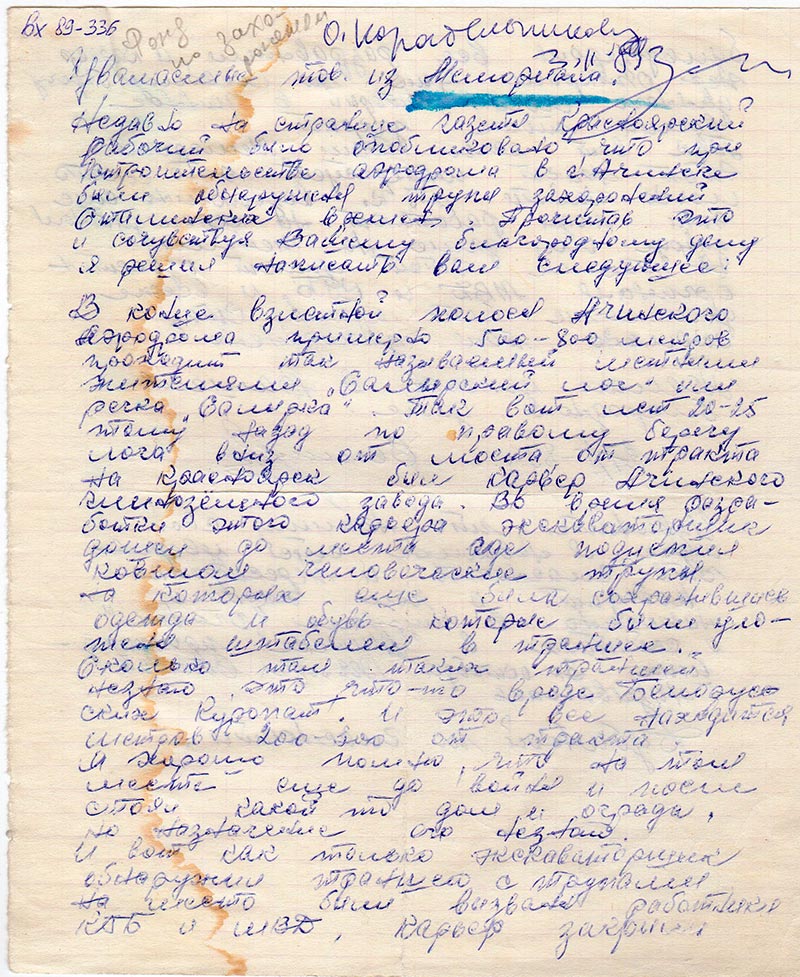 Вх 89-336
Фонд по захо-
ронениям
О. Коробельникову
3.XI 89
Уважаемые тов. из Мемориала.
Недавно на странице газеты Красноярский
рабочий было опобликовано что при
строительстве аэродрома в г. Ачинске
были обнаружены трупы захоронений
Сталинских времен. Прочитав это
и сочувствуя Вашему благородному делу
я решил написать вам следующее:
В конце взлетной полосы Ачинского
Аэродрома примерно 500-800 метров
проходит так называемый местными
жителями „Салырский лог" или
речка „Салырка". Так вот лет 20-25
тому назад по правому берегу
лога вниз от моста от тракта
на Красноярск был карьер Ачинского
глинозёмного завода. Во время разра-
ботки этого карьера экскаваторщик
дошел до места где подцепил
ковшом человеческие трупы
на которых еще были сохранившиеся
одежда и обувь которые были уло-
жены штабелем в траншее.
Сколько там таких траншей
незнаю, это что-то вроде Белорус-
ских Куропат. И это все находится
метров 200-300 от тракта.
Я хорошо помню, что на том
месте еще до войны и после
стоял какой то дом и ограда,
но назначение его незнаю.
И вот как только экскаваторщик
обнаружил траншею с трупами
на место были вызваны работники
КГБ и МВД, карьер закрыли